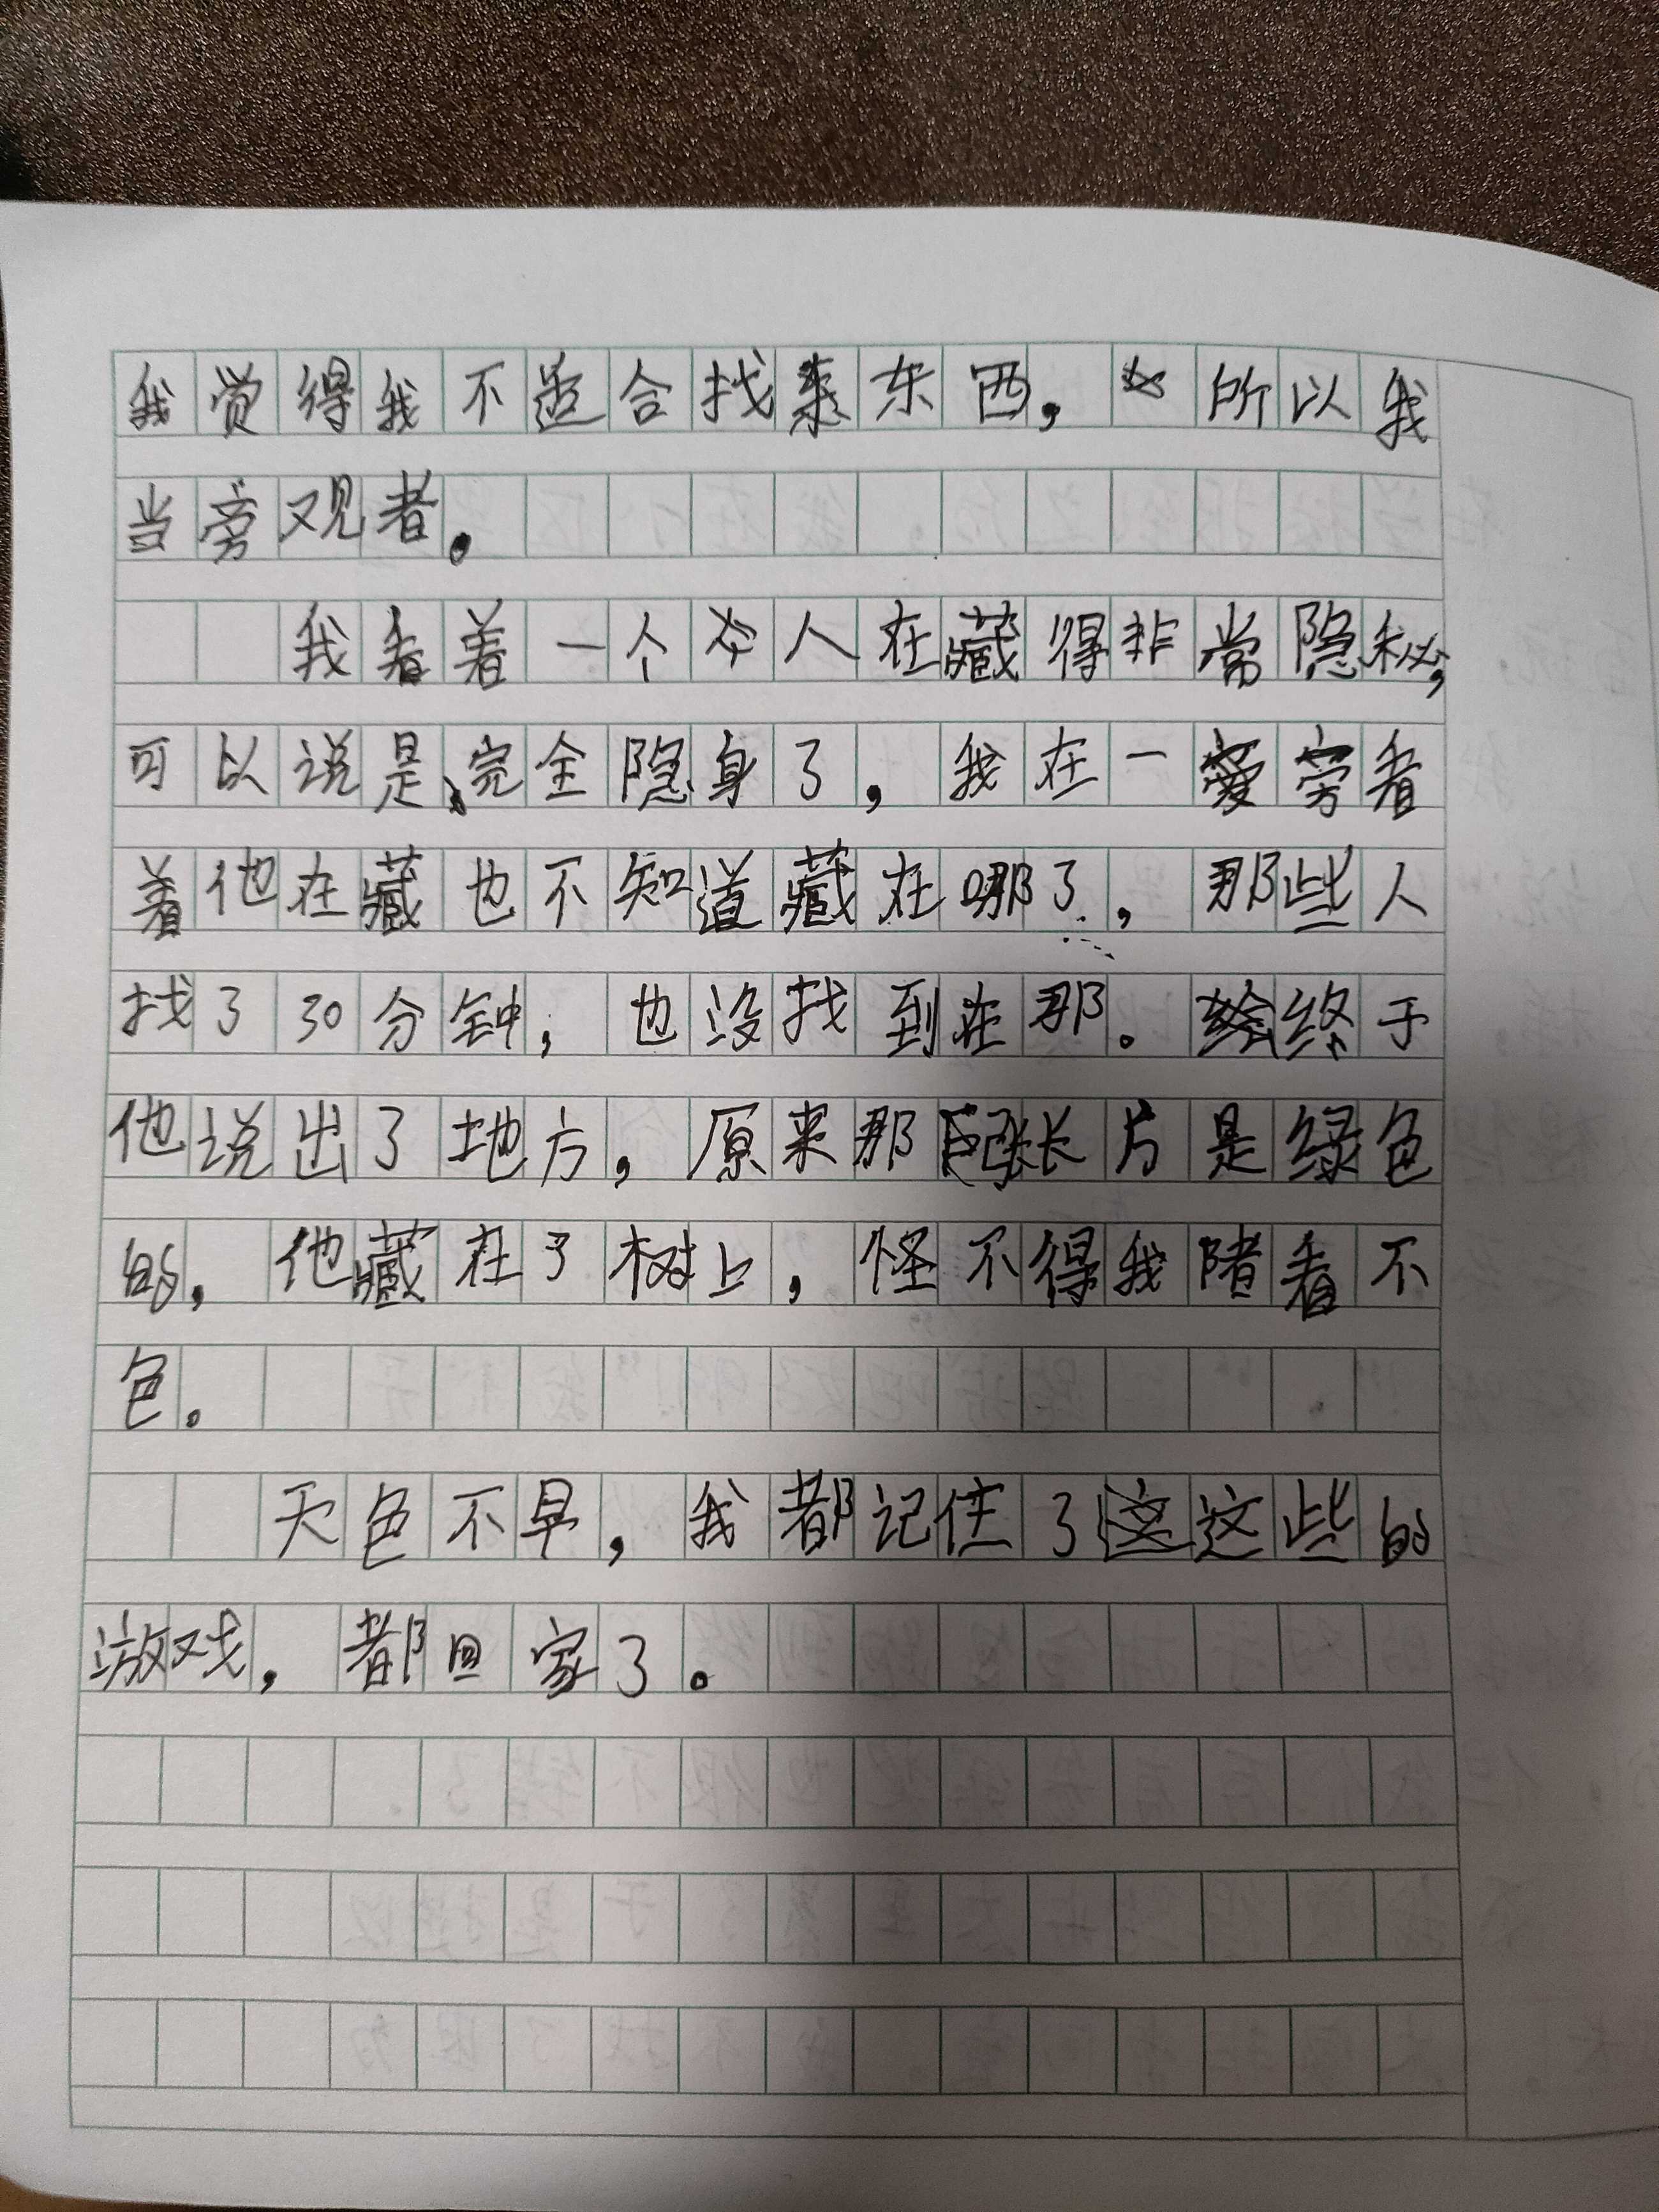 我觉得我不适合找东西，所以我
当旁观者。
我看着一个人在藏得非常隐秘，
可以说是、完全隐身了，我在一旁看
着他在藏也不知道藏在哪了，那些人
找了30分钟，也没找到在那。终于
他说出了地方，原来那长片是绿色
的，他藏在了树上，怪不得我睹看不
色。
天色不早，我都记住了这些的
游戏，都回家了。